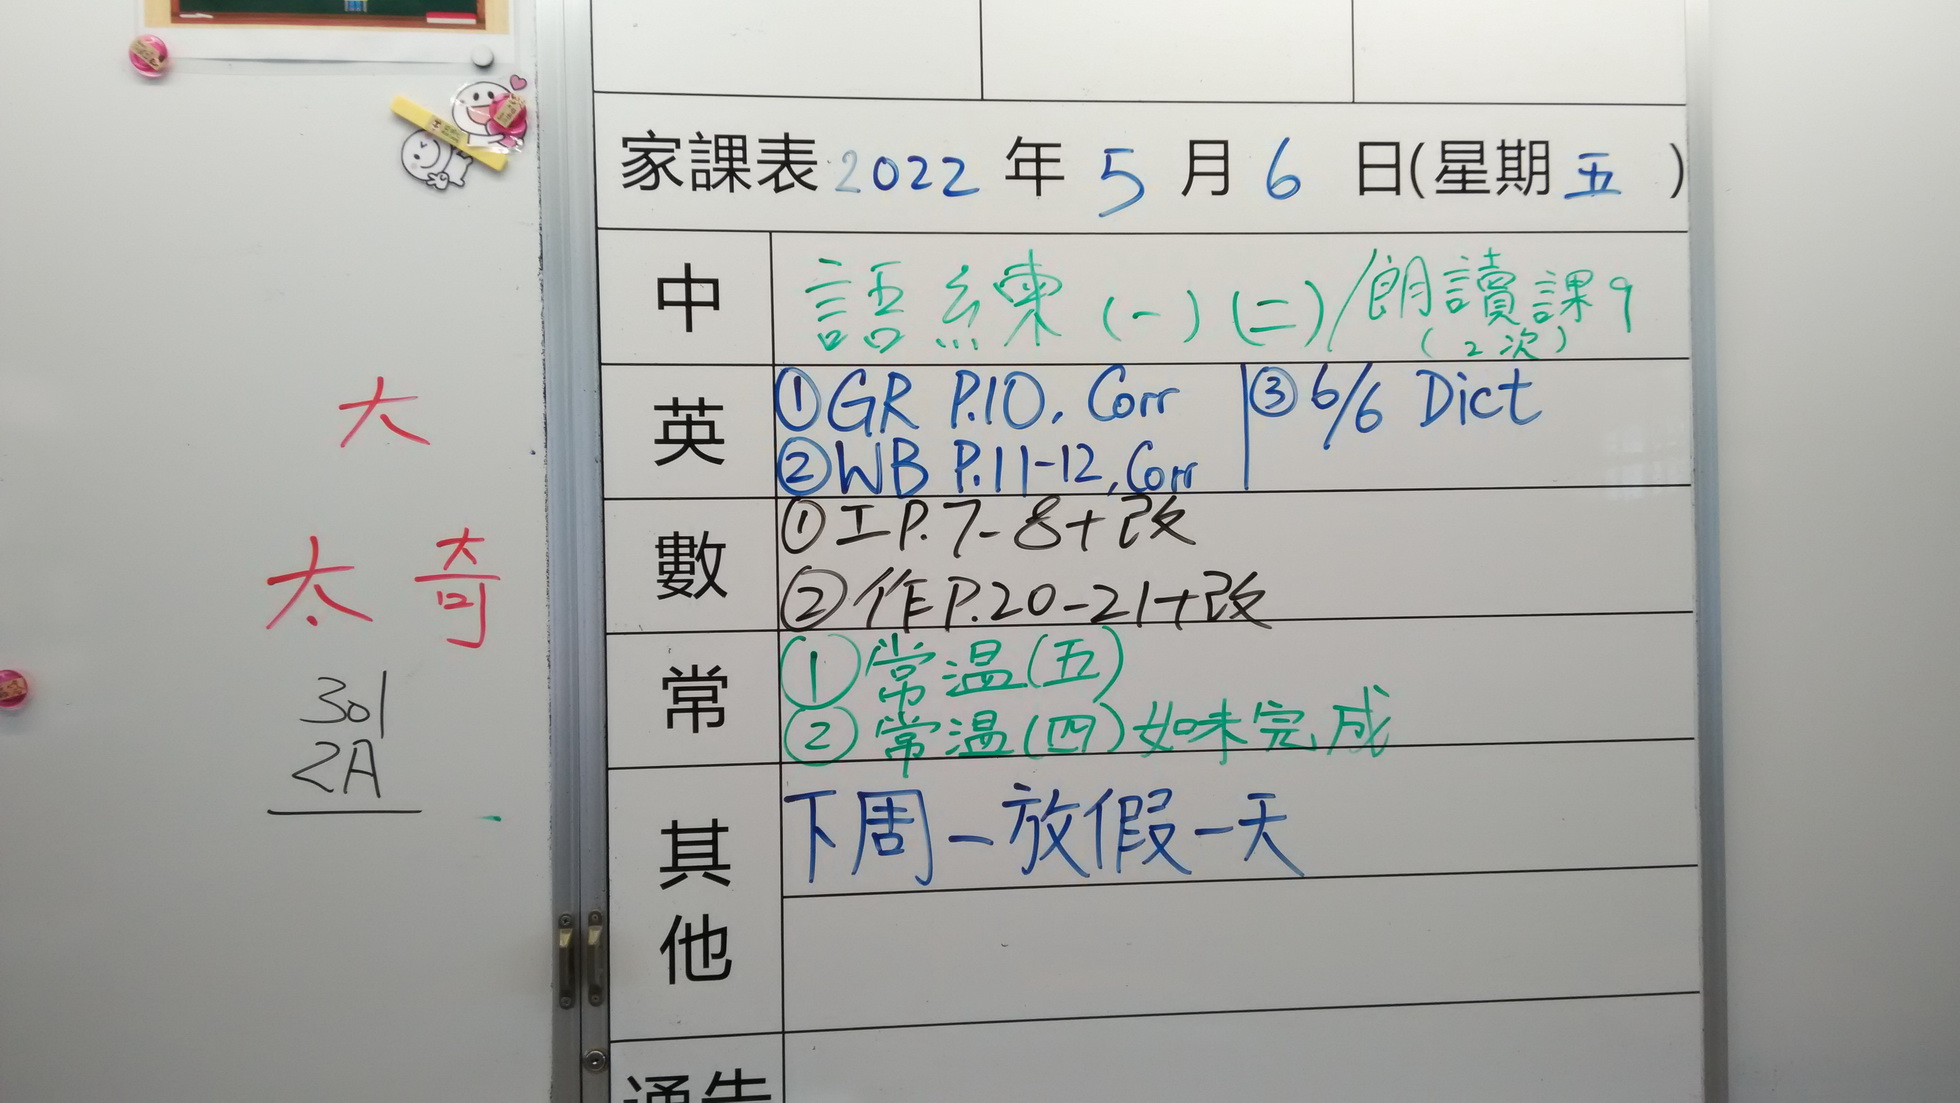 大
太 奇
301
2A
家課表 2022 年 5 月 6 日(星期 五 )
中
語練(一)(二)/朗讀課9
(2次)
英
①GR P.10, Corr
②WB P.11-12, Corr
③6/6 Dict
數
①工P.7-8+改
②作P.20-21+改
常
①常温(五)
②常温(四)如未完成
其他
下周一放假一天
通告